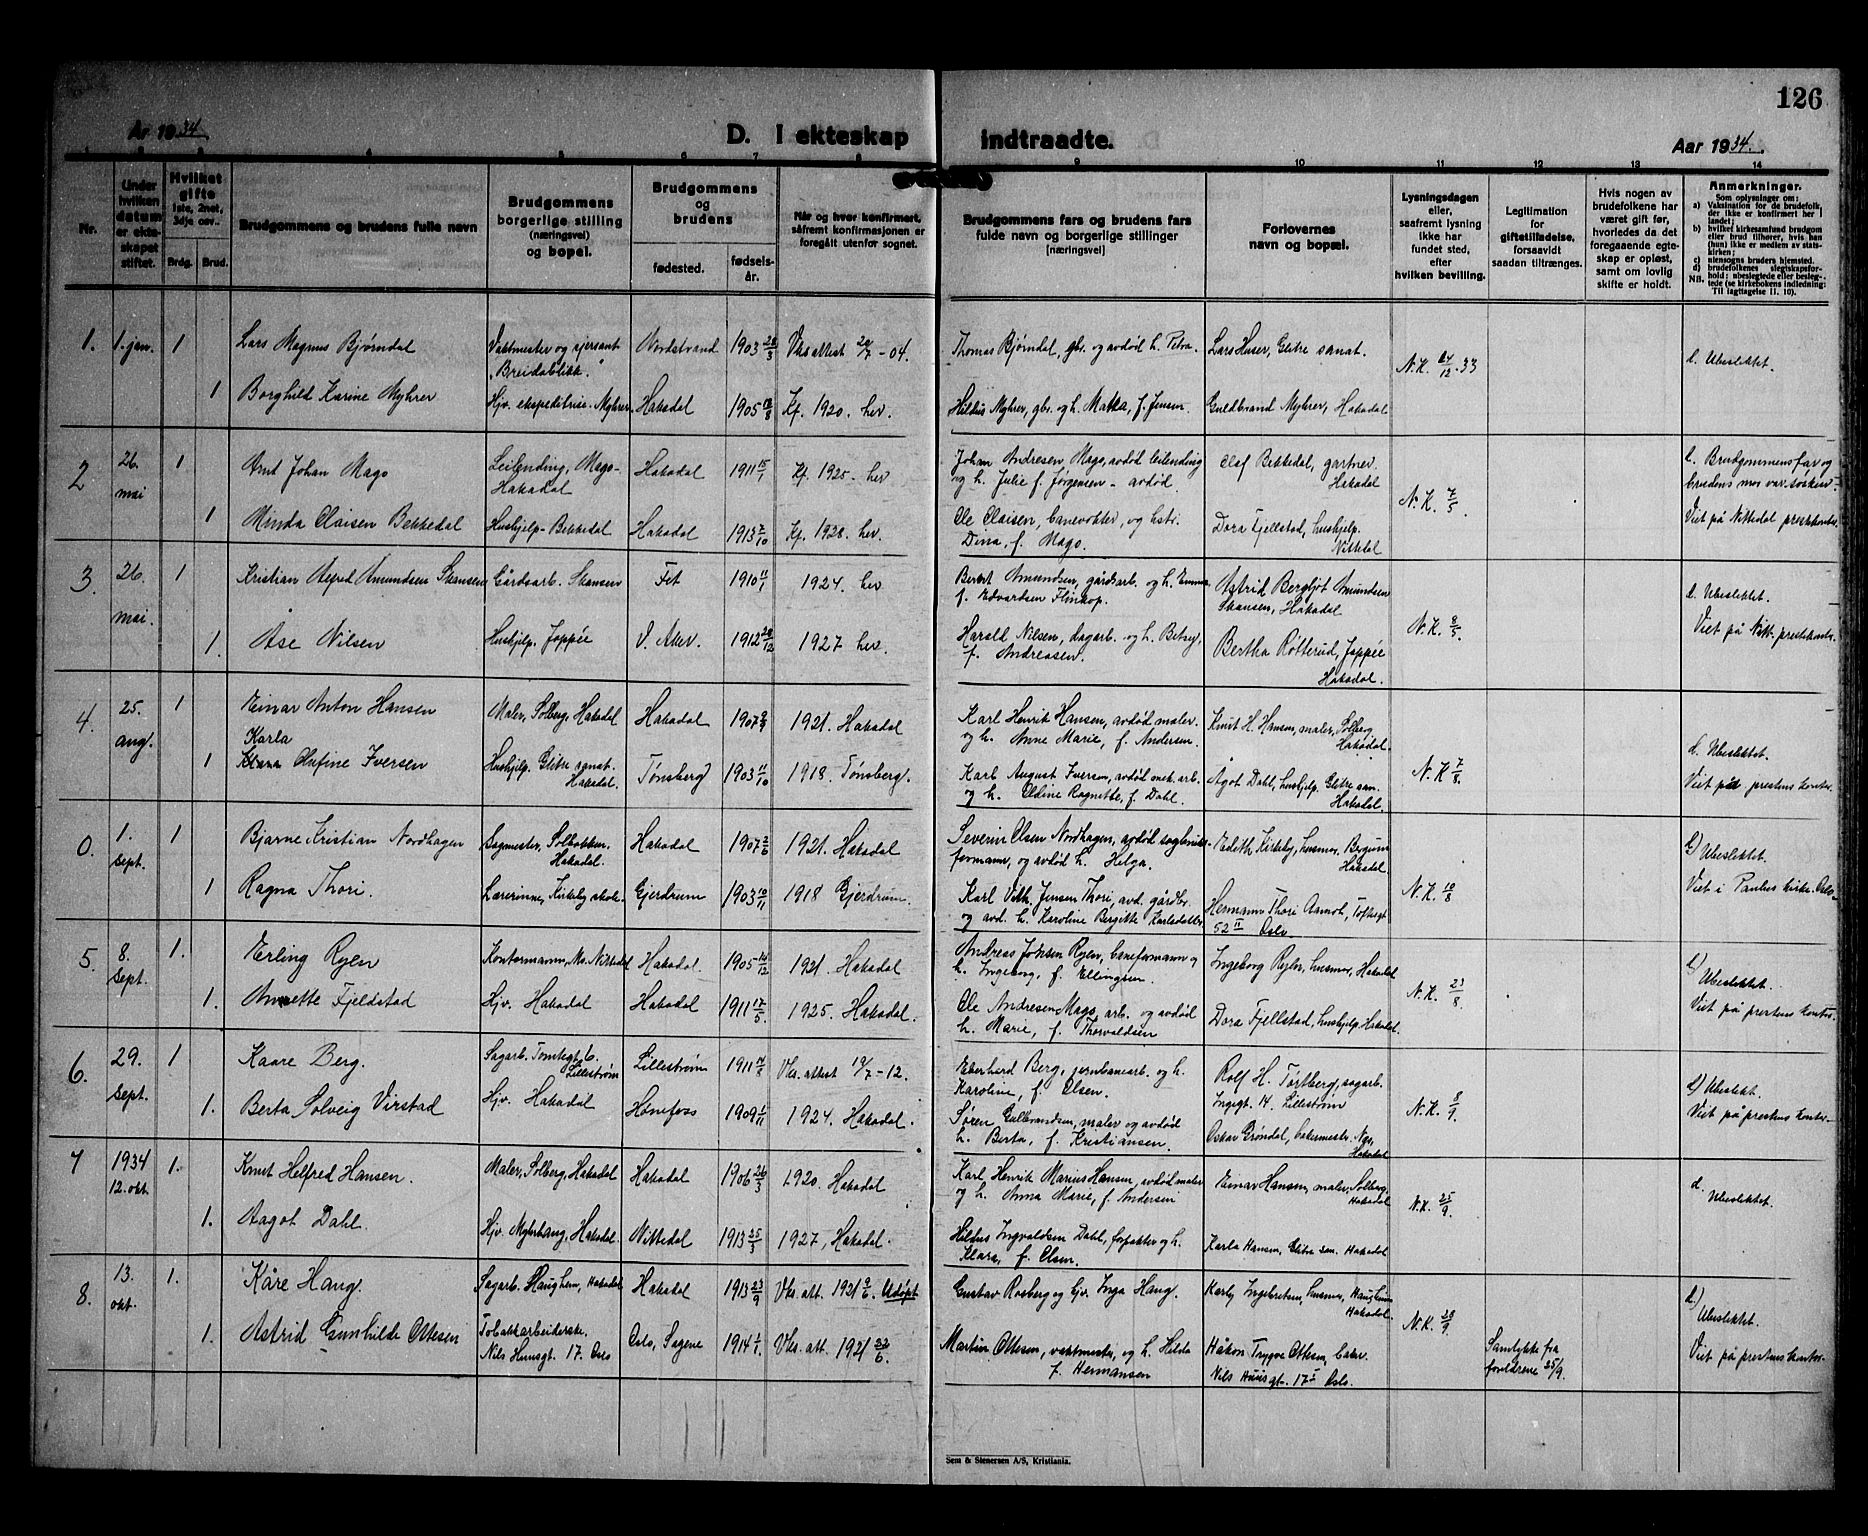 126
År 1934.
D. I ekteskap
indtraadte.
Aar 1934.
Nr.
Under hvilken datum er ekteskapet stiftet.
Hvilket gifte 1ste, 2net, 3dje osv.
Brdg. Brud.
Brudgommens og brudens fulle navn
Brudgommens borgerlige stilling (næringsvei) og bopel.
Brudgommens og brudens
fødested.
fødselsår.
Når og hvor konfirmert, såfremt konfirmasjonen er foregått utenfor sognet.
Brudgommens fars og brudens fars fulde navn og borgerlige stillinger [næringsvei]
Forlovernes navn og bopæl.
Lysningsdagen eller, saafremt lysning ikke har fundet sted, efter hvilken bevilling.
Legitimation for giftetilladelse, forsaavidt saadan tiltrænges.
Hvis nogen av brudefolkene har været gift før, hvorledes da det foregaaende egteskap er opløst, samt om lovlig skifte er holdt.
Anmerkninger.
Som oplysninger om:
a) Vaksination for de brudefolk, der ikke er konfirmert her i landet;
b) hvilket kirkesamfund brudgom eller brud tilhører, hvis han (hun) ikke er medlem av statskirken;
c) utensogns bruders hjemsted.
d) brudefolkenes slegtskapsforhold: ubeslegtede eller beslegtede (se kirkebokens indledning:
NB. Til iagttagelse II. 10).
1. 1. jan. 1 Lars Magnus Bjørndal Vaktmester og sjersant "Breidablikk." Nordstrand 1903 28/3 Vks attest 20/7 - 04. Thomas Bjørndal, gbr. og avdød h. Petra. Lars Huser, Glitre sanat. N.K. 14/12. 33 d. Ubeslektet.
1 Borghild Karine Myhrer Hjv. ekspeditrise. Myhrer Hakadal 1905 18/8 Kf. 1920. her. Hildus Myhrer, gbr. og h. Matha, f. Jensen. Guldbrand Myhrer, Hakadal
2 26. mai 1 Arnt Johan Mago Leilending, Mago-Hakadal Hakadal 1911 15/1 Kf. 1925. her Johan Andresen, Mago, avdød leilending og h. Julie f. Jørgensen - avdød. Olaf Bekkedal, gartner. Hakadal N.K. 7/5 d. Brudgommens far og brudens mor var søsken
1 Minda Olaisen Bekkedal Hushjelp- Bekkedal Hakadal 1913 7/10 Kf. 1928. her. Ole Olaisen, banevokter, og hstr. Dina, f. Mago. Dora Fjellstad, hushjelp. Nittedal Viet på Nittedal prestekontor
3. 26. mai. 1 Kristian Alfred Amundsen Skansen Gårdsarb. Skansen Fet 1910 11/1 1924. her Bernt Amundsen, gårdsarb. og h. Emma f. Edvardsen Flinkop. Astrid Bergljot Amundsen Skansen, Hakadal N.K. 8/5. d. Ubeslektet.
1. Åse Nilsen Hushjelp. Jappée V. Aker. 1912 28/12 1927 her. Harald Nilsen, dagarb. og h. Betsy, f. Andreasen. Bertha Røtterud, Jappée Hakadal. Viet på Nitt. prestekontor.
4. 25. aug. 1 Einar Anton Hansen Maler, Solberg, Hakadal Hakadal 1907 9/9 1921. Hakadal Karl Henrik Hansen, avdød maler og h. Anne Marie, f. Andersen. Knut H. Hansen, maler, Solberg Hakadal. N.K 7/8. d. Ubeslektet.
1 Karla Olufine Iversen Hushjelp. Glitre sanat. Hakadal. Tønsberg 1903 11/10 1918. Tønsberg. Karl August Iversen, avdød mek. arb. og h. Oldine Ragnette, f. Dahl. Ågot Dahl, hushjelp. Glitre san. Hakadal. Viet på prestens kontor.
0. 1. sept. 1 Bjarne Kristian Nordhagen Sagmester, Solbakken. Hakadal. Hakadal 1907 2/6 1921. Hakadal Severin Olsen Nordhagen, avdød sagbruksformann, og avdød h. Helga. Edith Kirkeby, husmor, Bergum Hakadal. N.K. 10/8 d) Ubeslektet.
1 Ragna Thori. Lærerinne, Kirkeby skole Gjerdrum 1903 10/11 1918 Gjerdrum. Karl Vilh. Jensen Thori, avd. gårdbr. og avd. h. Karoline Bergitte Karlsdatter Hermann Thori Aamot, Toftesgt 52 II Oslo Viet i Paulus kirke. Oslo
5. 8. sept. 1. Erling Ryen Kontormann, Mo. Nittedal Hakadal. 1905 14/12 1921. Hakadal Andreas Johsen Ryen, baneformann og h. Ingeborg, f. Ellingsen. Ingeborg Ryen, husmor, Hakadal N.K. 23/8. d) Ubeslektet.
1. Annette Fjeldstad Hjv. Hakadal Hakadal 1911 17/5. 1925. Hakadal. Ole Andresen Mago, arb. og avdød h. Marie, f. Thorvaldsen Dora Fjellstad, hushjelp, Hakadal Viet på prestens kontor.
6. 29. sept. 1 Kaare Berg. Sagarb. Tomtegt. 6. Lillestrøm Lillestrøm 1911 14/8 Vks. attest 19/7 - 12. Eberhard Berg, jernbanearb. og h. Karoline, f. Olsen. Rolf H. Tørtberg, sagarb. Ingegt. 14. Lillestrøm N.K. 8/9. d) Ubeslektet.
1. Berta Solveig Virstad Hjv. Hakadal Hønefoss 1909 1/11 1924. Hakadal. Søren Gulbrandsen, maler og avdød h. Berta, f. Kristiansen. Oskar Grøndal, bakermestr. Nye, Hakadal Viet på prestens kontor.
7 1934 12. okt. 1. Knut Helfred Hansen. Maler, Solberg, Hakadal Hakadal 1906 26/3 1920. Hakadal Karl Henrik Marius Hansen, avdød maler og h. Anna Marie, f. Andersen Einar Hansen, maler, Solberg, Hakadal N.K. 25/9. d. Ubeslektet.
1. Aagot Dahl. Hjv. Myhrhaug, Hakadal. Nittedal 1913 25/3 1927, Hakadal. Hildus Ingvaldsen Dahl, forpakter og h. Klara, f. Olsen. Karla Hansen, Glitre san. Hakadal
8. 13. okt. 1. Kåre Haug. Sagarb. Haugheim, Hakadal Hakadal 1913 23/9 Vks. att. 1921 9/6. Udøpt Gustav Rosberg og Hjv. Inga Haug. Karly Ingebretsen, husmor, Haugheim Hakadal. N.K. 28/9. d) Ubeslektet.
1. Astrid Gunhilde Ottesen Tobakkarbeiderske. Nils Huusgt. 17. Oslo Oslo, Sagene 1914 1/1. Vks. att. 1921 22/6. Martin Ottesen, vaktmester, og h. Hilda f. Hermansen Håkon Trygve Ottesen, baker. Nils Huusgt. 17 I Oslo. Samtykke fra foreldrene 25/9. Viet på prestens kontor.
Sem & Stenersen A/S, Kristiania.